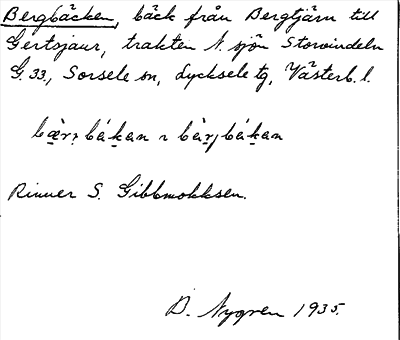 Bergbäcken, bäck från Bergtjärn till
Gertsjaur, trakten N. sjön Storvindeln
G. 33, Sorsele sn, Lycksele tg, Västerb. l.
Rinner S. Gibbmokksen.
B. Nygren 1935.